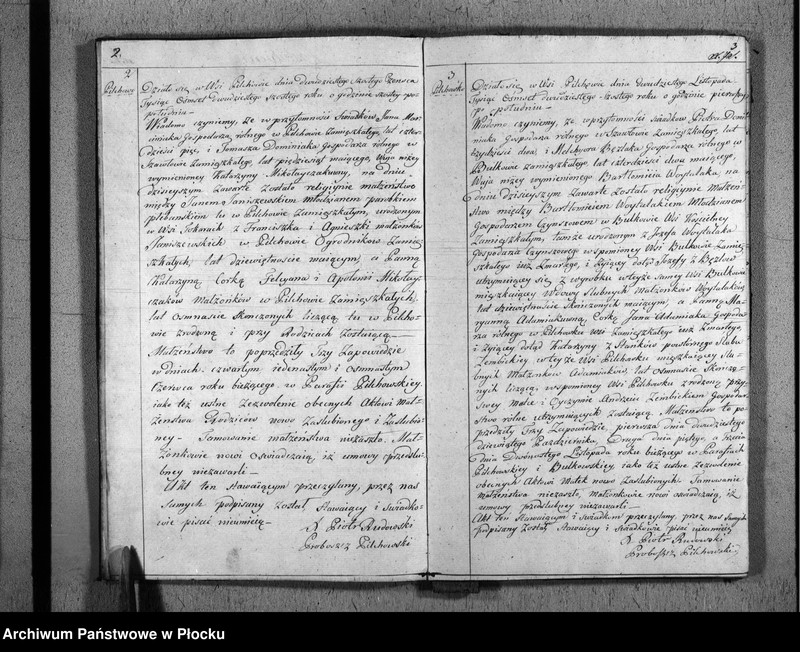 2.
2
Pilchowo
Działo się w Wsi Pilchowie dnia dwudziestego szostego Czerwca
Tysiąc Osmset dwudziestego szostego roku o godzinie szostey po
południu –
Wiadomo czynięmy, że w przytomności Swiadków Jana Mar
ciniaka Gospodarza rolnego w Pilchowie Zamięszkałego, lat czter
dzieści pięć, i Tomasza Dominiaka Gospodarza rolnego w
Zamięszkałego, lat pięćdziesiąt maiącego, Wuja niżey
wymienioney Katarzyny Mikołayczakowny, na dniu
dzisieyszym zawarte zostało religiyne małżeństwo
między Janem Janiszewskiem młodzianem parobkiem
tu w Pilchowie Zamięszkałym, urodzonym
w Wsi z Franciszka i Agnieszki małżonków
Janiszewskich w Pilchowie Ogrodników Zamię
szkałych, lat dziewiętnaście maiącym, a Panną
Katarzyną Corką Felicyana i Apolonii Mikołay
czaków Małżonków w Pilchowie Zamięszkałych,
lat Osmnaście skończonych liczącą, tu w Pilcho
wie zrodzoną i przy Rodzicach zostaiącą –
Małżeństwo to poprzedziły Trzy Zapowiedzie
w dniach czwartym iedenastym i osmnastym
Czerwca roku bieżącego w Parafii Pilchowskiey
iako też ustne Zezwolenie obecnych Aktowi Mał
żeństwa Rodziców nowo Zaślubionego i Zaślubio
ney – Tamowanie małżeństwa niezaszło. Mał
żonkowie nowi oświadczaią, iż umowy przedślu
bney niezawarli –
Akt ten stawaiącym przeczytany, przez nas
Samych podpisany został, stawaiący i Swiadko
wie pisać nieumieią –
X Piotr Rudowski
Proboszcz Pilchowski
3
3
Działo się w Wsi Pilchowie dnia dwudziestego Listopada
Tysiąc Osmset dwudziestego szostego roku o godzinie pierwszey
po południu –
Wiadomo czynięmy, że w przytomności świadków Piotra Domi
niaka Gospodarza rolnego w Zamięszkałego, lat
trzydzieści dwa, i Melchyora Bezlaka Gospodarza rolnego w
Bulkowie Zamięszkałego lat czterdzieści dwa maiącego,
Wuja niżey wymienionego Bartłomieia Woytalaka, na
dniu dzisieyszym zawarte zostało religiyne Małżeń-
stwo między Bartłomieiem Woytalakiem Młodzianem
Gospodarzem Czynszowem w Bulkowie Wsi
Zamięszkałym, tamże urodzonym z Józefa Woytalaka
Gospodarza Czynszowego w spomnioney Wsi Bulkowie Zamię
szkałego iuż Zmarłego, i żyiącey dotąd Józefy z Bezlaw
utrzymuiącey się z wyrobku w teyże samey Wsi Bulkowie
mięszkaiącey Wdowy ślubnych Małżonków Woytalaków
lat dziewiętnaście skończonych maiącym, a Panną Ma
ryanną Adamiakowną, Corką Jana Adamiaka Gospoda
rza rolnego w Pilchowku Wsi Zamięszkałego iuż Zmarłego,
i żyiącey dotąd Katarzyny z Staników powtórnego ślubu
Zembickiey w teyże Wsi Pilchowku mięszkaiącey ślu
bnych Małżonków Adamiaków, lat osmnaście skończo
nych liczącą, w spomnioney Wsi Pilchowku zrodzoną przy
swey Matce i Oyczymie Andrzeiu Zembickiem Gospodar
stwo rolne utrzymuiących zostaiącą. Małżeństwo to po
przedziły Trzy Zapowiedzie, pierwsza dnia dwudziestego
dziewiątego Października, Druga dnia piątego, a trzecia
dnia Dwónastego Listopada roku bieżącego w Parafiach
Pilchowskiey i Bulkowskiey, iako też ustne Zezwolenie
obecnych Aktowi Matek nowo Zaślubionych. Tamowanie
małżeństwa niezaszło, Małżonkowie nowi oświadczaią, iż
umowy przedślubney niezawarli –
Akt ten stawaiącym i świadkom przeczytany, przez nas samych
podpisany został, stawaiący i świadkowie pisać nieumieią
X Piotr Rudowski
Proboszcz Pilchowski
Archiwum Państwowe w Płocku